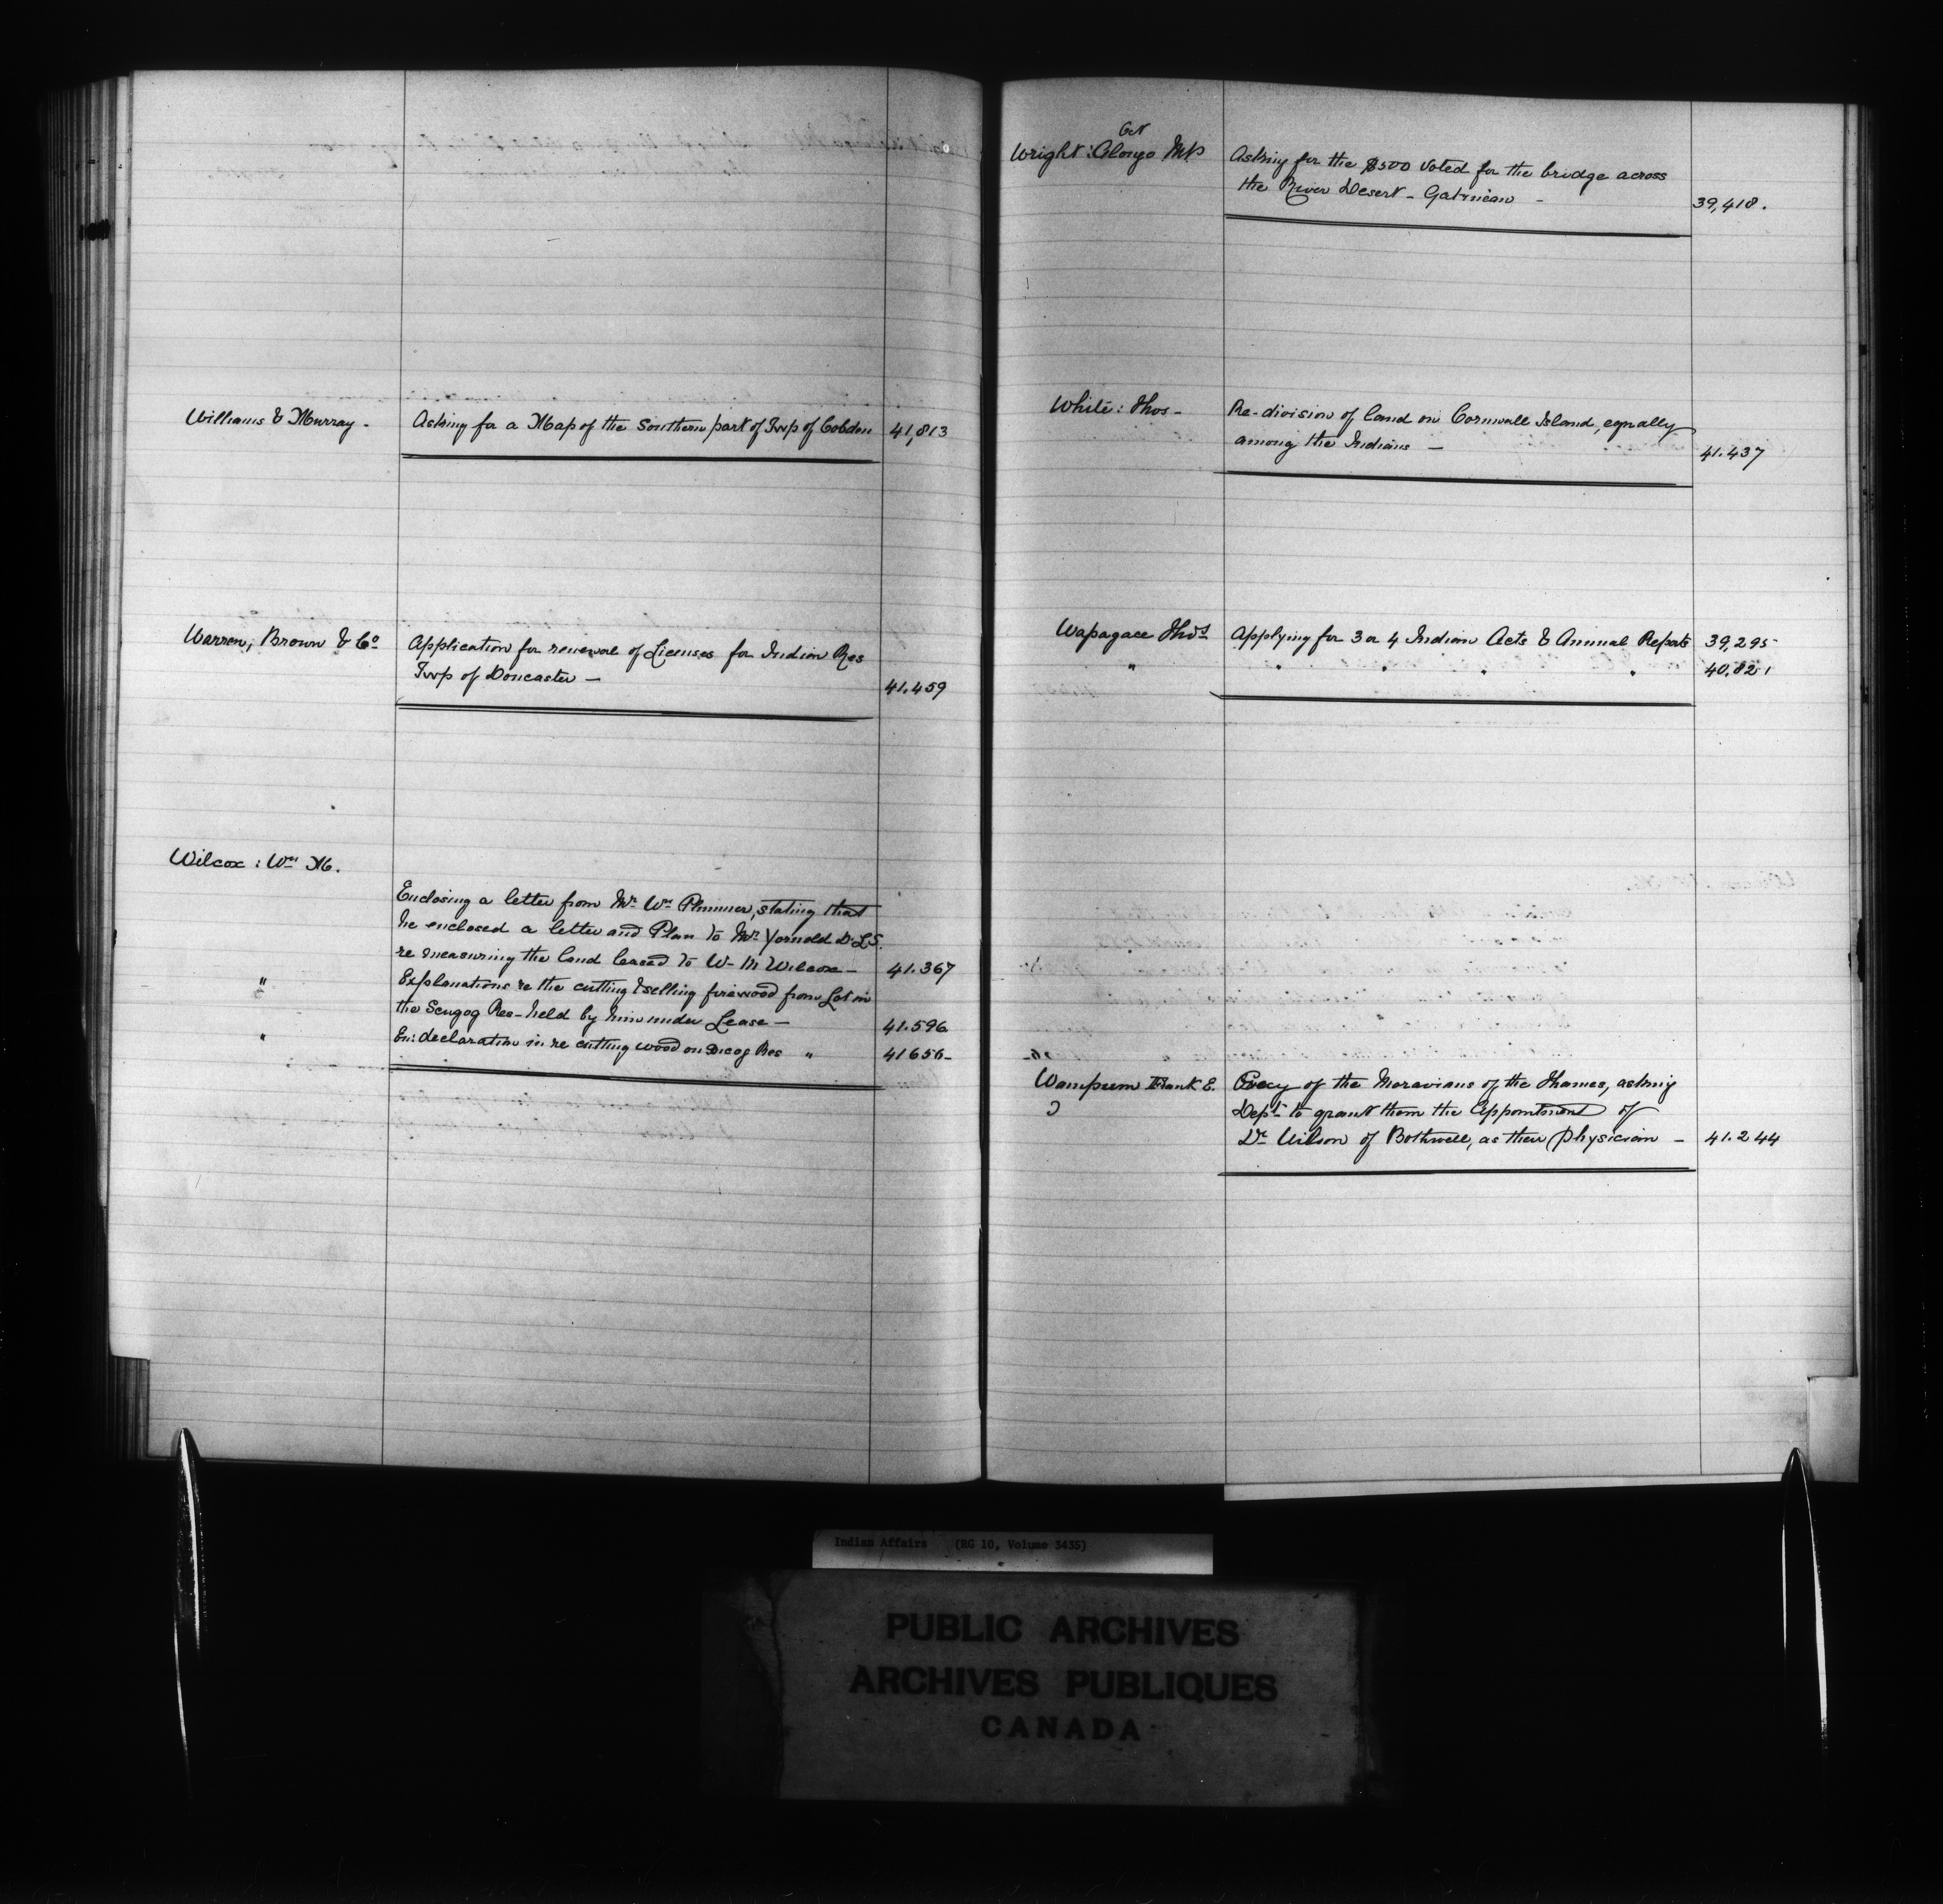 Williams & Murray - Asking for a Map of the Southern part of Twp of Cobden 41,813
Warren, Brown & Co Application for renewal of Licenses for Indian Res
Twp of Doncaster - 41.459
Wilcox : Wm M.
Enclosing a letter from Mr Wm Plummer, stating that
he enclosed a letter and Plan to Mr Yarnold D.L.S.
re measuring the land leased to W- M Wilcox - 41.367
" Explanations re the cutting & selling firewood from Lot in
the Scugog Res - held by him under Lease - 41.596
" En: declaration in re cutting wood on Res " 41656-
Wright : Alonzo MP Asking for the $500 voted for the bridge across
the River Desert - Gatineau - 39,418.
White : Thos - Re-division of land on Cornwall Island, equally
among the Indians - 41.437
Wapagace Thos Applying for 3 or 4 Indian Acts & Annual Reports 39,295
" " " " " 40.821
Wampum Frank E. of the Moravians of the Thames, asking
Dept to grant them the Appointment of
Dr Wilson of Bothwell, as their physician - 41.244
Indian Affairs (RG 10, Volume 3435)
PUBLIC ARCHIVES
ARCHIVES PUBLIQUES
CANADA